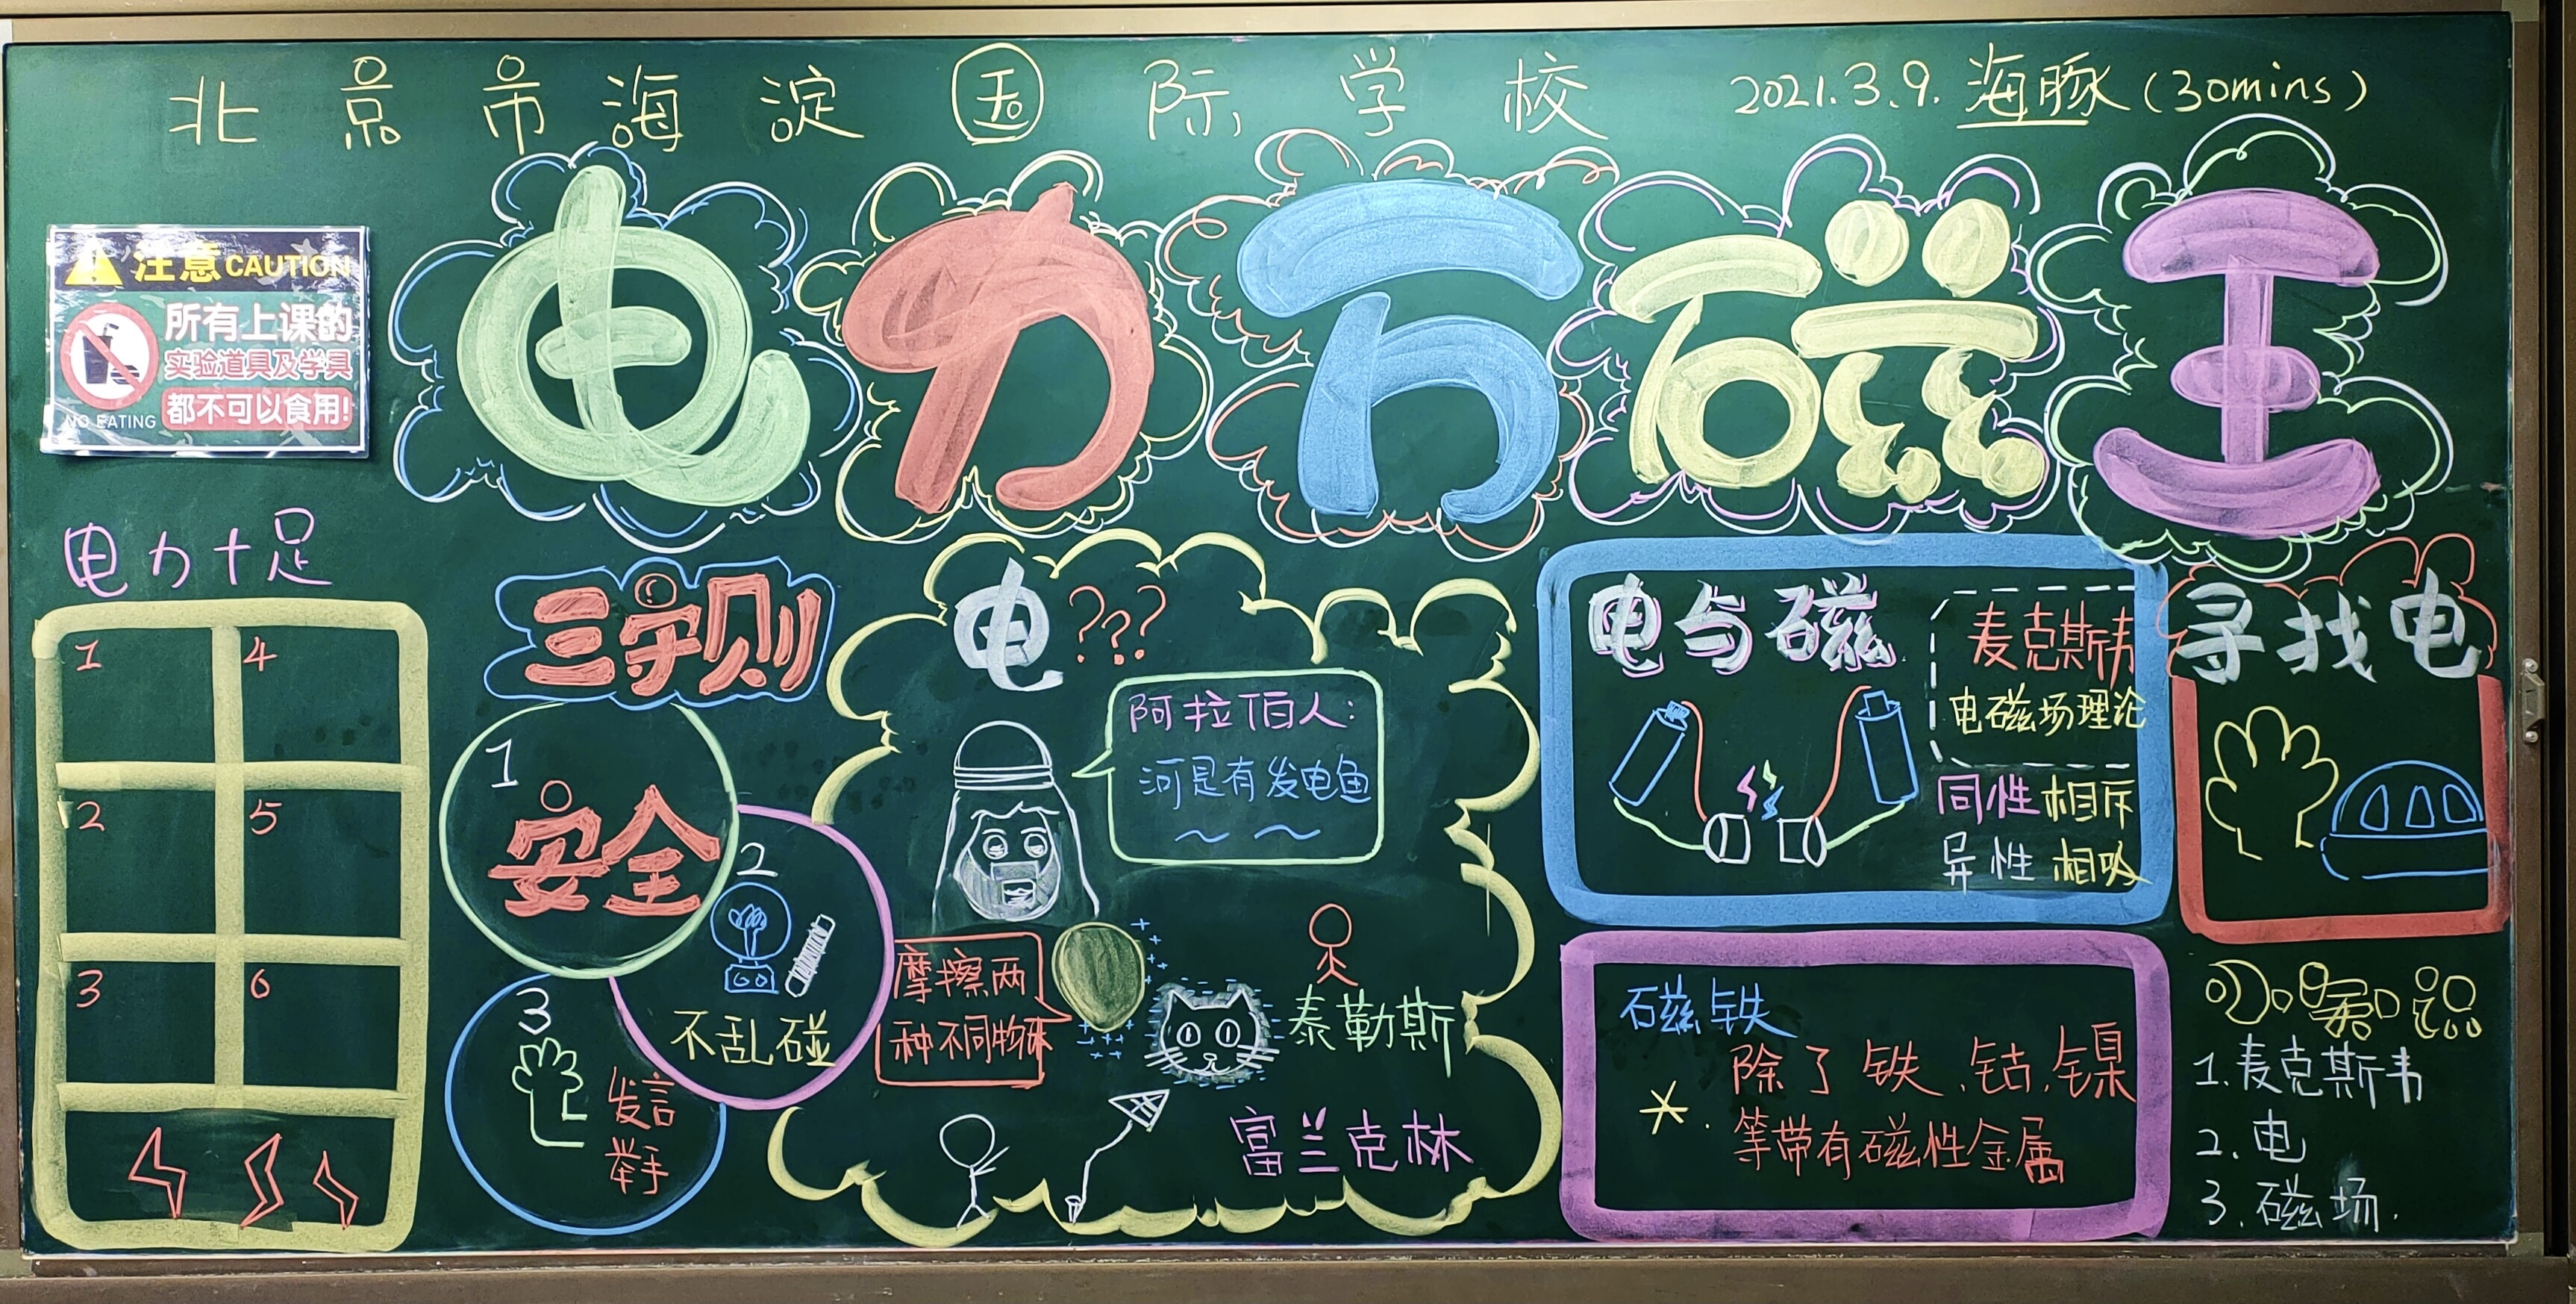 北京市海淀国际学校 2021.3.9. 海豚(30mins)
注意 CAUTION
所有上课的
实验道具及学具
都不可以食用!
NO EATING
电力万磁王
电力十足
1 4
2 5
3 6
三守则
1
安全
2
不乱碰
3
发言
举手
电???
阿拉伯人:
河是有发电鱼
～ ～
摩擦两
种不同物体
泰勒斯
富兰克林
电与磁
麦克斯韦
电磁场理论
同性相斥
异性相吸
寻找电
磁铁
除了铁、钴、镍
等带有磁性金属
小知识
1.麦克斯韦
2.电
3.磁场.